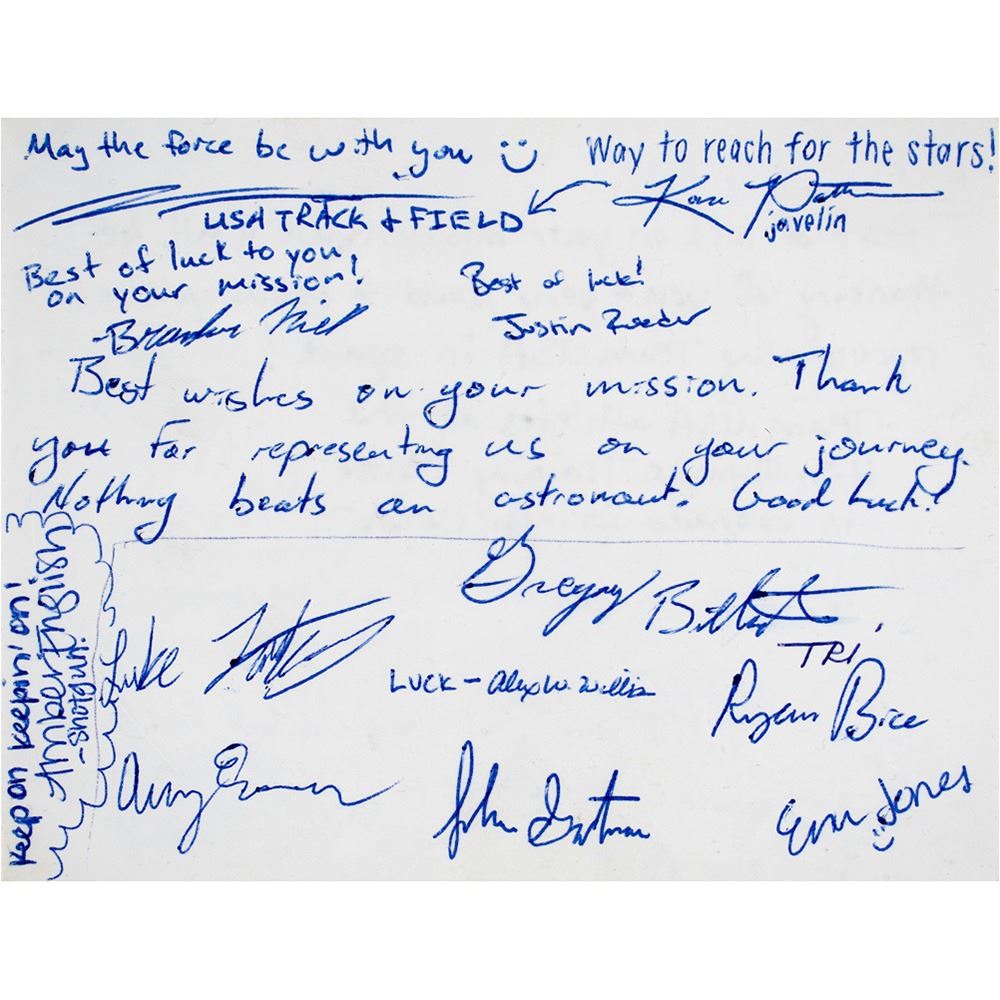 May the force be with you :) Way to reach for the stars!
USA TRACK & FIELD
javelin
Best of luck to you,
on your mission!
Best of luck!
Justin Roeder
Best wishes on your mission. Thank
you for representing us on your journey.
Nothing beats an astronaut. Good Luck!
Keep on keepin' on!
Amber English
- Shotgun!
Gregory
TRI
Luke
LUCK - Alex W. Willis
Ryan Brice
Amy
John
Erin Jones